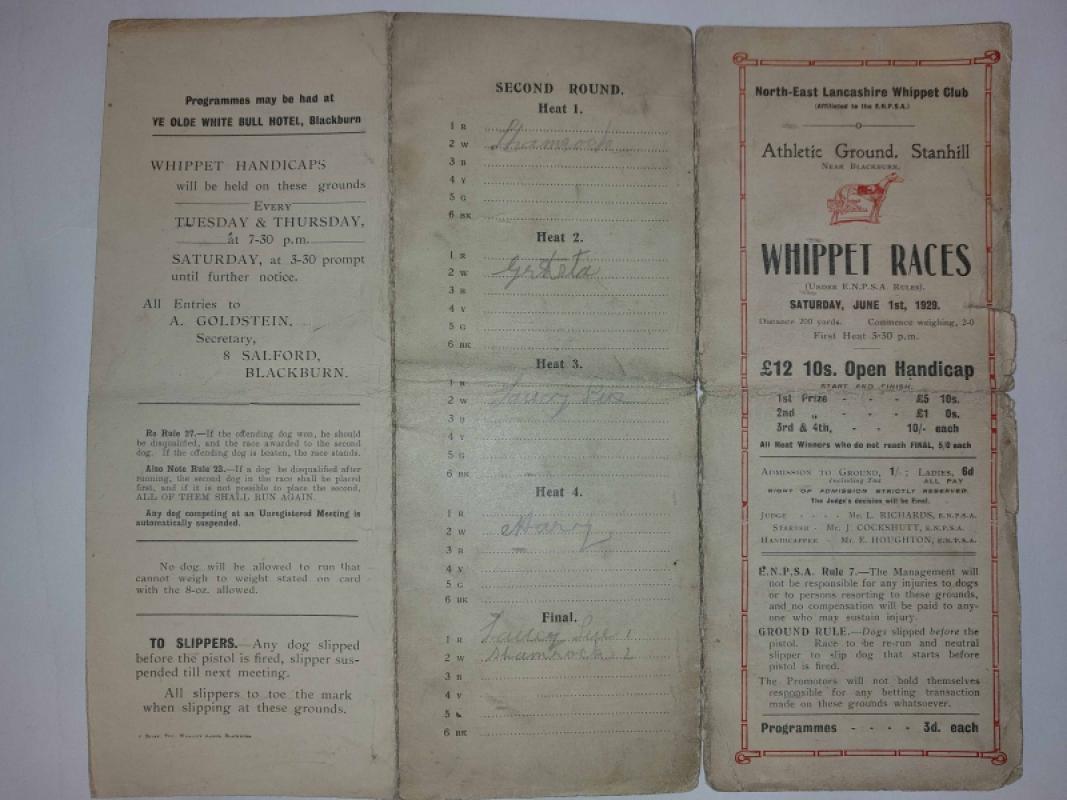 Programmes may be had at
YE OLDE WHITE BULL HOTEL, Blackburn
WHIPPET HANDICAPS
will be held on these grounds
EVERY
TUESDAY & THURSDAY,
at 7-30 p.m.
SATURDAY, at 3-30 prompt
until further notice.
All Entries to
A. GOLDSTEIN,
Secretary,
8 SALFORD,
BLACKBURN.
Re Rule 27.—If the offending dog won, he should
be disqualified, and the race awarded to the second
dog. If the offending dog is beaten, the race stands.
Also Note Rule 23.—If a dog be disqualified after
running, the second dog in the race shall be placed
first, and if it is not possible to place the second,
ALL OF THEM SHALL RUN AGAIN.
Any dog competing at an Unregistered Meeting is
automatically suspended.
No dog will be allowed to run that
cannot weigh to weight stated on card
with the 8-oz. allowed.
TO SLIPPERS.—Any dog slipped
before the pistol is fired, slipper sus-
pended till next meeting.
All slippers to toe the mark
when slipping at these grounds.
SECOND ROUND.
Heat 1.
1 R
2 W Shamrock
3 B
4 Y
5 G
6 BK
Heat 2.
1 R
2 W Greta
3 B
4 Y
5 G
6 BK
Heat 3.
1 R
2 W
3 B
4 Y
5 G
6 BK
Heat 4.
1 R
2 W Harry
3 B
4 Y
5 G
6 BK
Final.
1 R 1
2 W Shamrock 2
3 B
4 Y
5
6 BK
North-East Lancashire Whippet Club
(Affiliated to the E.N.P.S.A.)
Athletic Ground, Stanhill
NEAR BLACKBURN.
WHIPPET RACES
(UNDER E.N.P.S.A. RULES).
SATURDAY, JUNE 1st, 1929.
Distance 200 yards. Commence weighing, 2-0
First Heat 3-30 p.m.
£12 10s. Open Handicap
START AND FINISH.
1st Prize - - - £5 10s.
2nd „ - - - £1 0s.
3rd & 4th, - - 10/- each
All Heat Winners who do not reach FINAL, 5/0 each
ADMISSION TO GROUND, 1/-; LADIES, 6d
including Tax ALL PAY
RIGHT OF ADMISSION STRICTLY RESERVED.
The Judge's decision will be final.
JUDGE - - - - MR. L. RICHARDS, E.N.P.S.A.
STARTER - MR. J. COCKSHUTT, E.N.P.S.A.
HANDICAPPER - MR. E. HOUGHTON, E.N.P.S.A.
E.N.P.S.A. Rule 7.—The Management will
not be responsible for any injuries to dogs
or to persons resorting to these grounds,
and no compensation will be paid to any-
one who may sustain injury.
GROUND RULE.—Dogs slipped before the
pistol. Race to be re-run and neutral
slipper to slip dog that starts before
pistol is fired.
The Promotors will not hold themselves
responsible for any betting transaction
made on these grounds whatsoever.
Programmes - - - - 3d. each